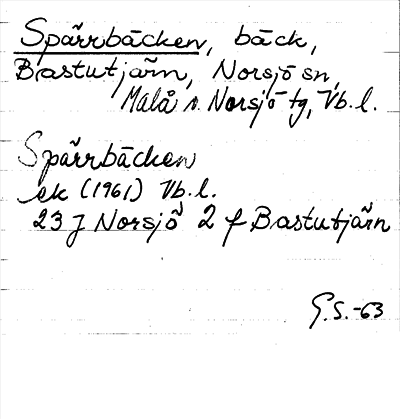 Spärrbäcken, bäck,
Bastutjärn, Norsjö sn,
Malå o. Norsjö tg, Vb. l.
Spärrbäcken
ek (1961) Vb. l.
23 J Norsjö 2 f Bastutjärn
G.S.-63